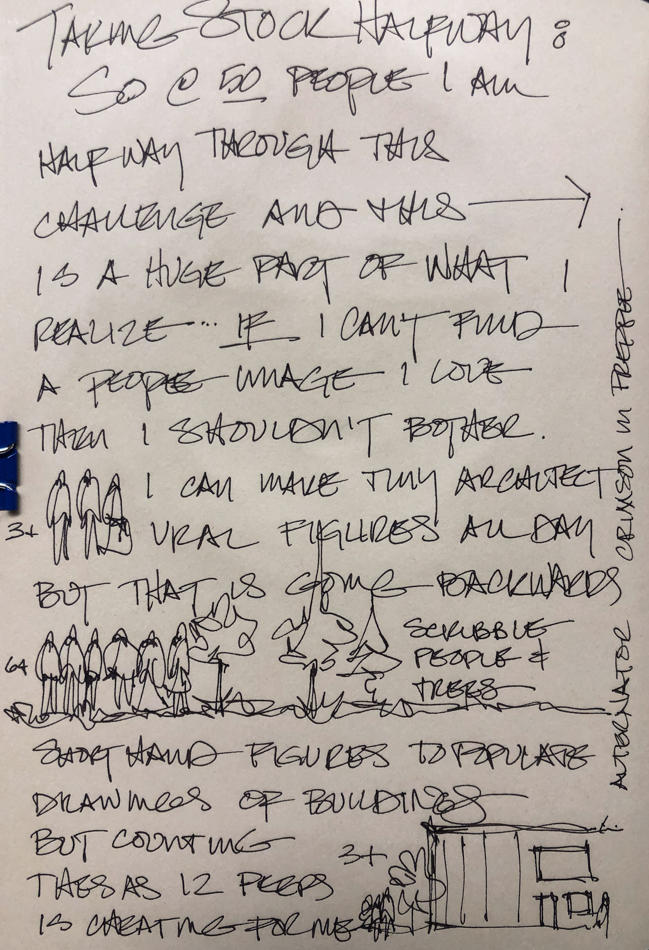 TAKING STOCK HALFWAY:
SO @ 50 PEOPLE I AM
HALFWAY THROUGH THIS
CHALLENGE AND THIS →
IS A HUGE PART OF WHAT I
REALIZE... IF I CAN'T FIND
A PEOPLE IMAGE I LOVE
THEN I SHOULDN'T BOTHER.
I CAN MAKE TINY ARCHITECT
3+ URAL FIGURES ALL DAY
BUT THAT IS GOING BACKWARDS
SCRIBBLE
6+ PEOPLE &
TREES
SHORT HAND FIGURES TO POPULATE
DRAWINGS OF BUILDINGS
BUT COUNTING
3+
THES AS 12 PEEPS
IS CHEATING FOR ME
ALTERNATOR CRIMSON IN PREPPIE